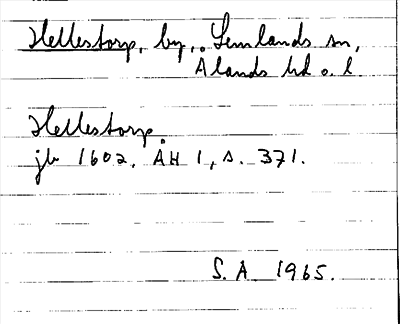 Hellestorp, by, Lemlands sn,
Ålands hd o. l.
Hellestorp
jb 1602, ÅH 1, s. 371.
S. A 1965.